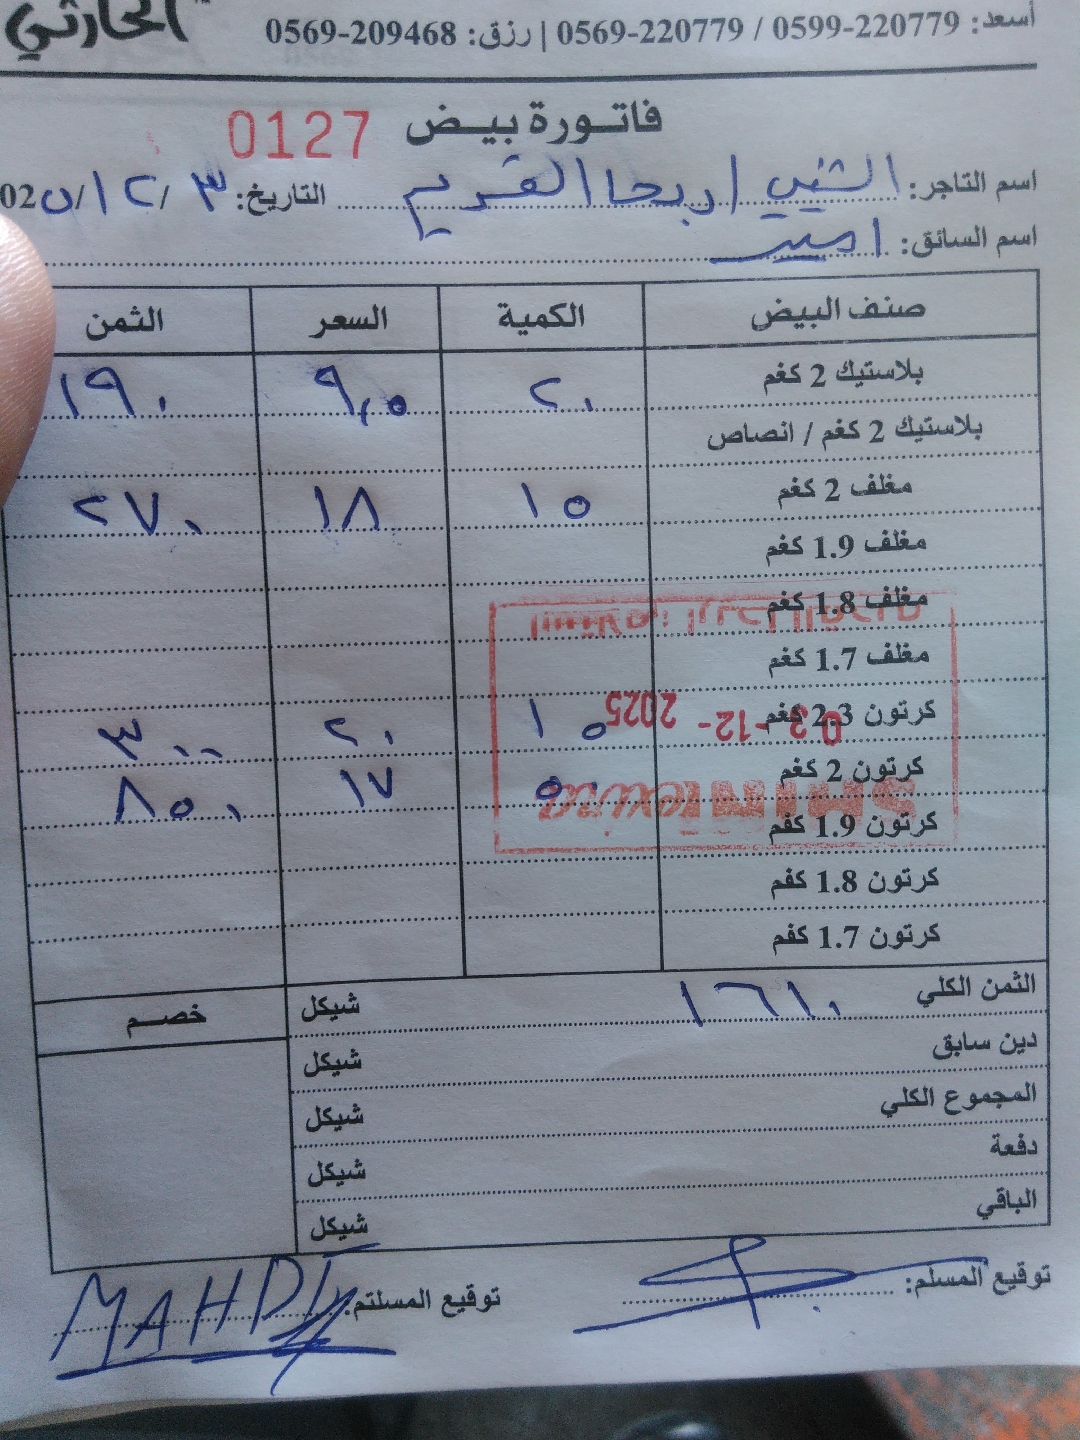 الحارثي
أسعد: 0599-220779 / 0569-220779 | رزق: 0569-209468
فاتورة بيض 0127
اسم التاجر: الشني / اريحا القديم التاريخ: ٣ / ١٢ / 02٥
اسم السائق: امير
صنف البيض الكمية السعر الثمن
بلاستيك 2 كغم ٢٠ ٩,٥ ١٩٠
بلاستيك 2 كغم / انصاص
مغلف 2 كغم ١٥ ١٨ ٢٧٠
مغلف 1.9 كغم
مغلف 1.8 كغم
مغلف 1.7 كغم
كرتون 2.3 كغم ١٥ ٢٠ ٣٠٠
كرتون 2 كغم ٥٠ ١٧ ٨٥٠
كرتون 1.9 كفم
كرتون 1.8 كفم
كرتون 1.7 كفم
03 -12- 2025
الثمن الكلي ١٦١٠ شيكل خصم
دين سابق شيكل
المجموع الكلي شيكل
دفعة شيكل
الباقي شيكل
توقيع المسلم: توقيع المسلتم: MAHDI